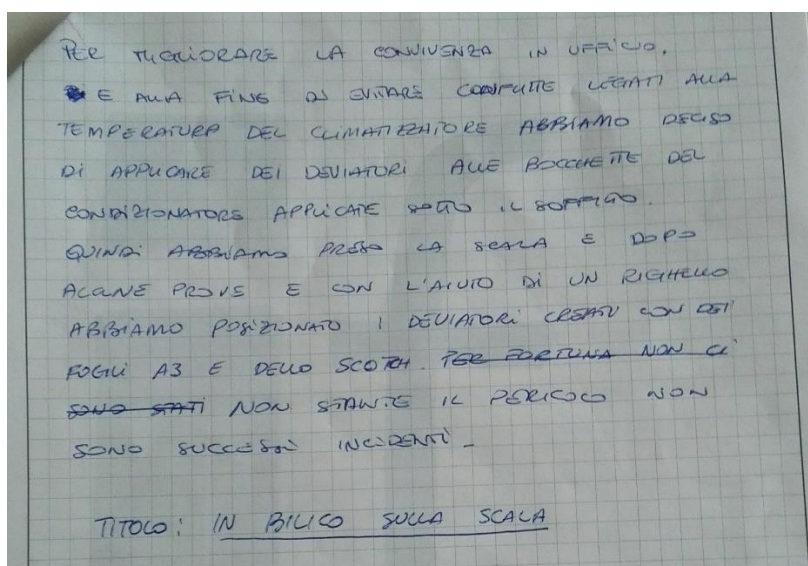 PER MIGLIORARE LA CONVIVENZA IN UFFICIO,
E ALLA FINE DI EVITARE CONFLITTI LEGATI ALLA
TEMPERATURA DEL CLIMATIZZATORE ABBIAMO DECISO
DI APPLICARE DEI DEVIATORI ALLE BOCCHETTE DEL
CONDIZIONATORE APPLICATE SOTTO IL SOFFITTO.
QUINDI ABBIAMO PRESO LA SCALA E DOPO
ALCUNE PROVE E CON L'AIUTO DI UN RIGHELLO
ABBIAMO POSIZIONATO I DEVIATORI CREATI CON DEI
FOGLI A3 E DELLO SCOTCH. PER FORTUNA NON CI
SONO STATI NON STANTE IL PERICOLO NON
SONO SUCCESSI INCIDENTI_
TITOLO: IN BILICO SULLA SCALA